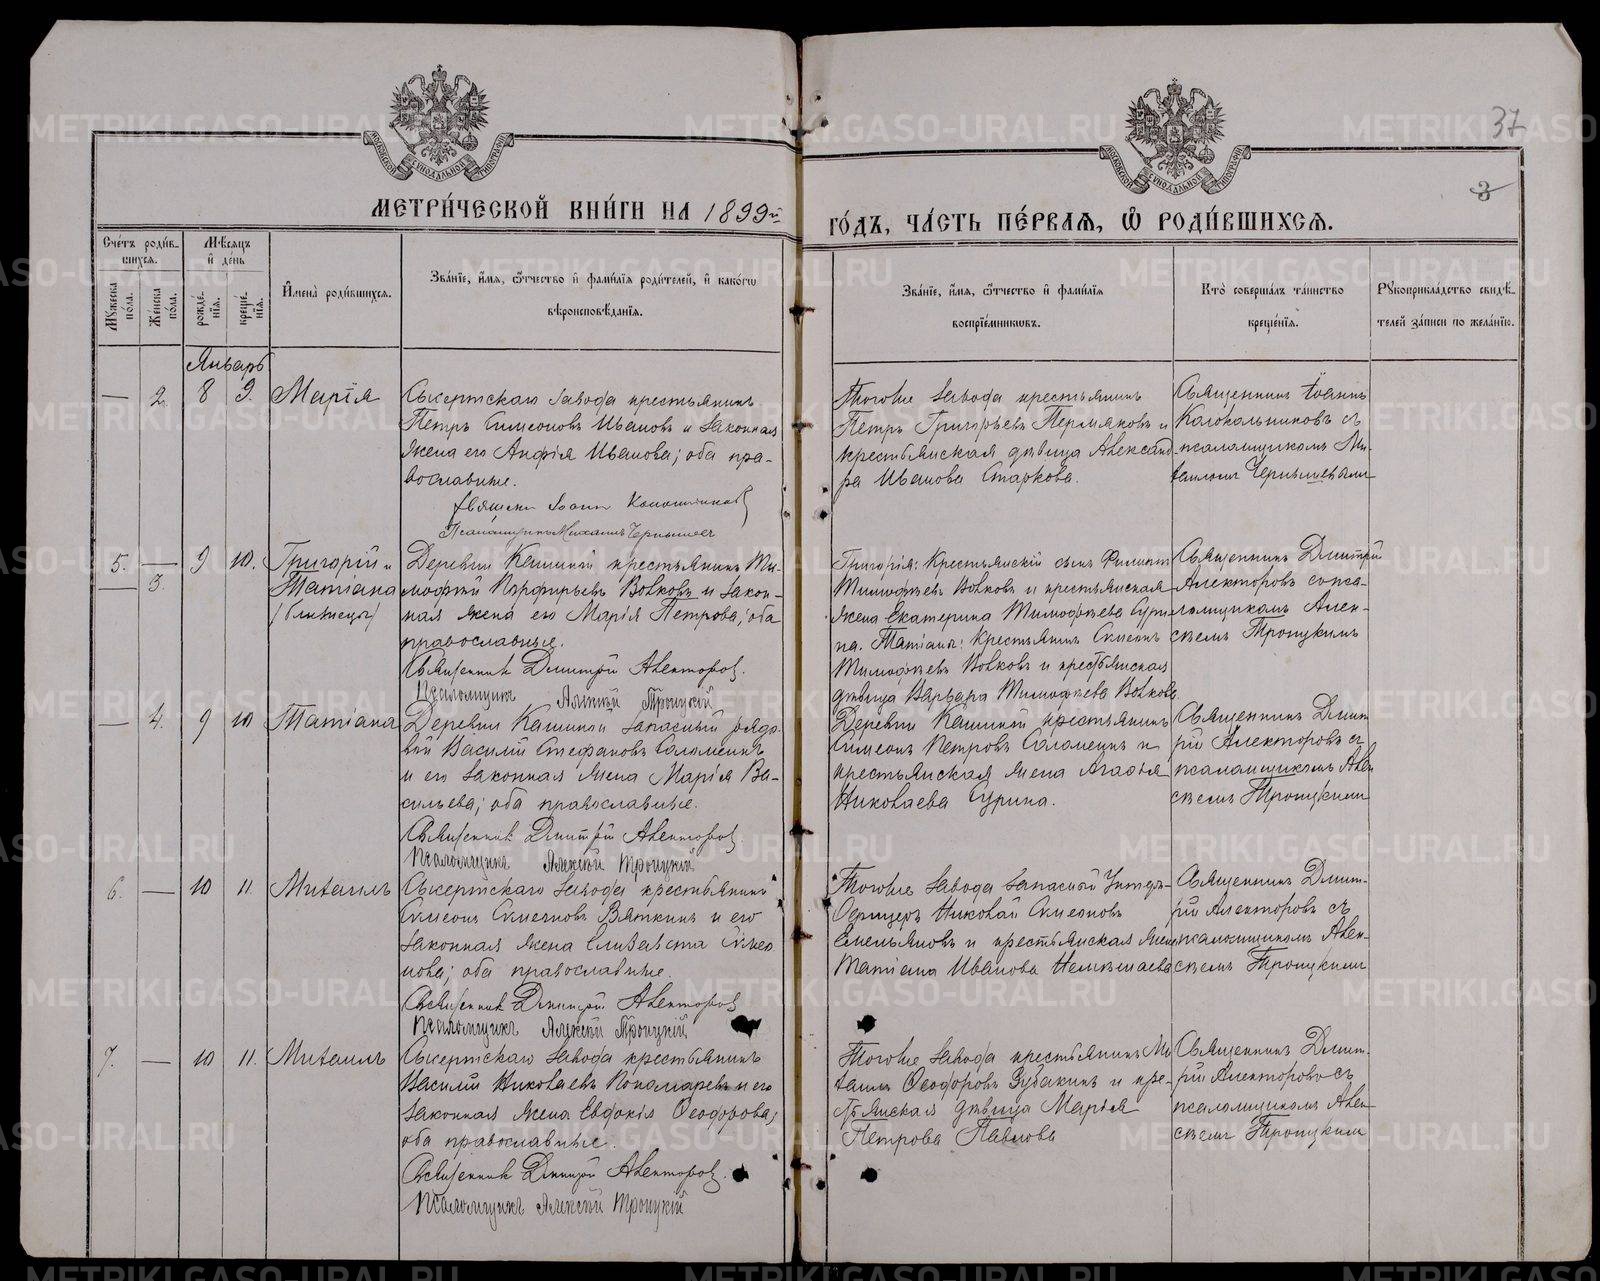 37
3
МОСКОВСКОЙ СѴНОДАЛЬНОЙ ТИПОГРАФІИ
МОСКОВСКОЙ СѴНОДАЛЬНОЙ ТИПОГРАФІИ
МЕТРИ́ЧЕСКОЙ КНИ́ГИ НА 1899й
ГО́ДЪ, ЧА́СТЬ ПЕ́РВАЯ, Ѡ РОДИ́ВШИХСЯ.
Сче́тъ роди́в-
шихся.
Му́жеска пола.
Же́нска пола.
Мѣсяцъ
и де́нь
рожде́-
нія.
креще́-
нія.
Имена̀ роди́вшихся.
Зва́ніе, имя, отчество и фами́лія роди́телей, и како́гѡ
вѣроисповѣ́данія.
Зва́ніе, имя, отчество и фами́лія
воспріе́мниковъ.
Кто̀ соверша́лъ та́инство
креще́нія.
Рукоприкла́дство свидѣ́-
телей за́писи по жела́нію.
Январь
— 2. 8 9. Марія
Сысертскаго завода крестьянинъ
Петръ Симеоновъ Ивановъ и законная
жена его Анфія Иванова; оба пра-
вославные.
Священ. Іоанн Колокольников
Псаломщикъ Михаилъ Чернышев
Тогоже завода крестьянинъ
Петръ Григорьевъ Пермяковъ и
крестьянская дѣвица Александ-
ра Иванова Старкова.
Священникъ Іоаннъ
Колокольниковъ съ
псаломщикомъ Ми-
хаиломъ Чернышевымъ
5. — 9 10. Григорій и
— 3. Татіана
(близнецы)
Деревни Кашиной крестьянинъ Ти-
мофей Порфирьевъ Волковъ и закон-
ная жена его Марія Петрова; оба
православные.
Священник Димитрій Алекторов.
Псаломщикъ Алексѣй Троицкій
Григорія: Крестьянскій сынъ Филиппъ
Тимофѣевъ Волковъ и крестьянская
жена Екатерина Тимофѣева Сури-
на. Татіаны: Крестьянинъ Симеонъ
Тимофѣевъ Волковъ и крестьянская
дѣвица Варвара Тимофѣева Волкова.
Священникъ Димитрій
Алекторовъ с пса-
ломщикомъ Алек-
сѣемъ Троицкимъ
— 4. 9 10 Татіана
Деревни Кашиной запасный рядо-
вой Василій Стефановъ Саламеинъ
и его законная жена Марія Ва-
сильева; оба православные.
Священник Димитрій Алекторов.
Псаломщикъ Алексѣй Троицкій
Деревни Кашиной крестьянинъ
Симеонъ Петровъ Саламеинъ и
крестьянская жена Агафія
Николаева Сурина.
Священникъ Димит-
рій Алекторовъ съ
псаломщикомъ Алек-
сѣемъ Троицкимъ
6. — 10 11. Михаилъ
Сысертскаго завода крестьянинъ
Симеонъ Симеоновъ Вяткинъ и его
законная жена Елизавета Симео-
нова; оба православные.
Священник Димитрій Алекторов
Псаломщикъ Алексѣй Троицкій
Тогоже завода запасный Унтеръ-
Офицеръ Николай Симеоновъ
Емельяновъ и крестьянская жена
Татіана Иванова
Священникъ Димит-
рій Алекторовъ съ
псаломщикомъ Алек-
сѣемъ Троицкимъ
7. — 10 11. Михаилъ
Сысертскаго завода крестьянинъ
Василій Николаевъ Пономаревъ и его
законная жена Евдокія Ѳеодорова;
оба православные.
Священник Димитрій Алекторов.
Псаломщикъ Алексѣй Троицкій
Тогоже завода крестьянинъ Ми-
хаилъ Ѳеодоровъ Зубакинъ и кре-
стьянская дѣвица Марья
Петрова Павлова
Священникъ Димит-
рій Алекторовъ съ
псаломщикомъ Алек-
сѣемъ Троицкимъ
METRIKI.GASO-URAL.RU